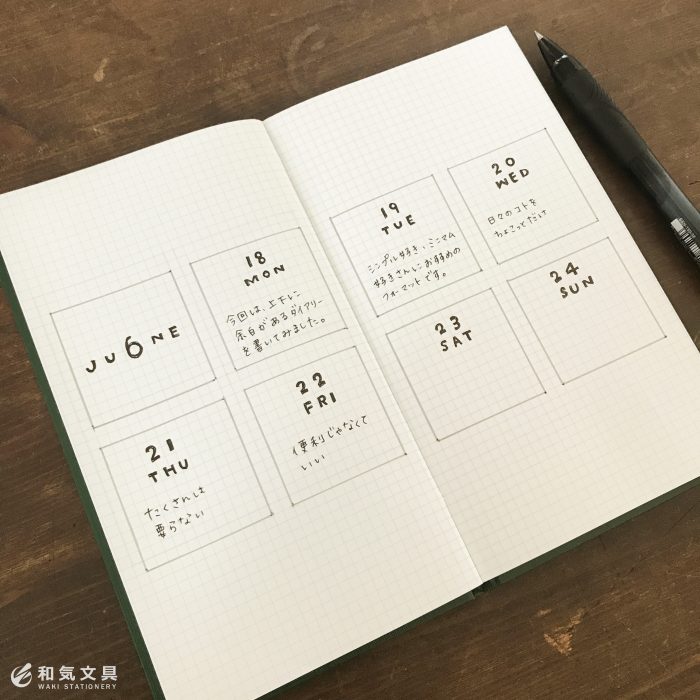 JU6NE
18
MON
今回は、上下に
余白があるダイアリー
を書いてみました。
19
TUE
シンプル好き、ミニマム
好きさんにおすすめの
フォーマットです。
20
WED
日々のコトを
ちょこっとだけ
21
THU
たくさんは
要らない
22
FRI
便利じゃなくて
いい
23
SAT
24
SUN
和気文具
WAKI STATIONERY